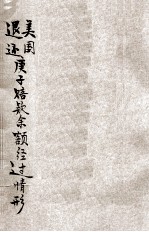 美国
退还庚子赔款余额经过情形